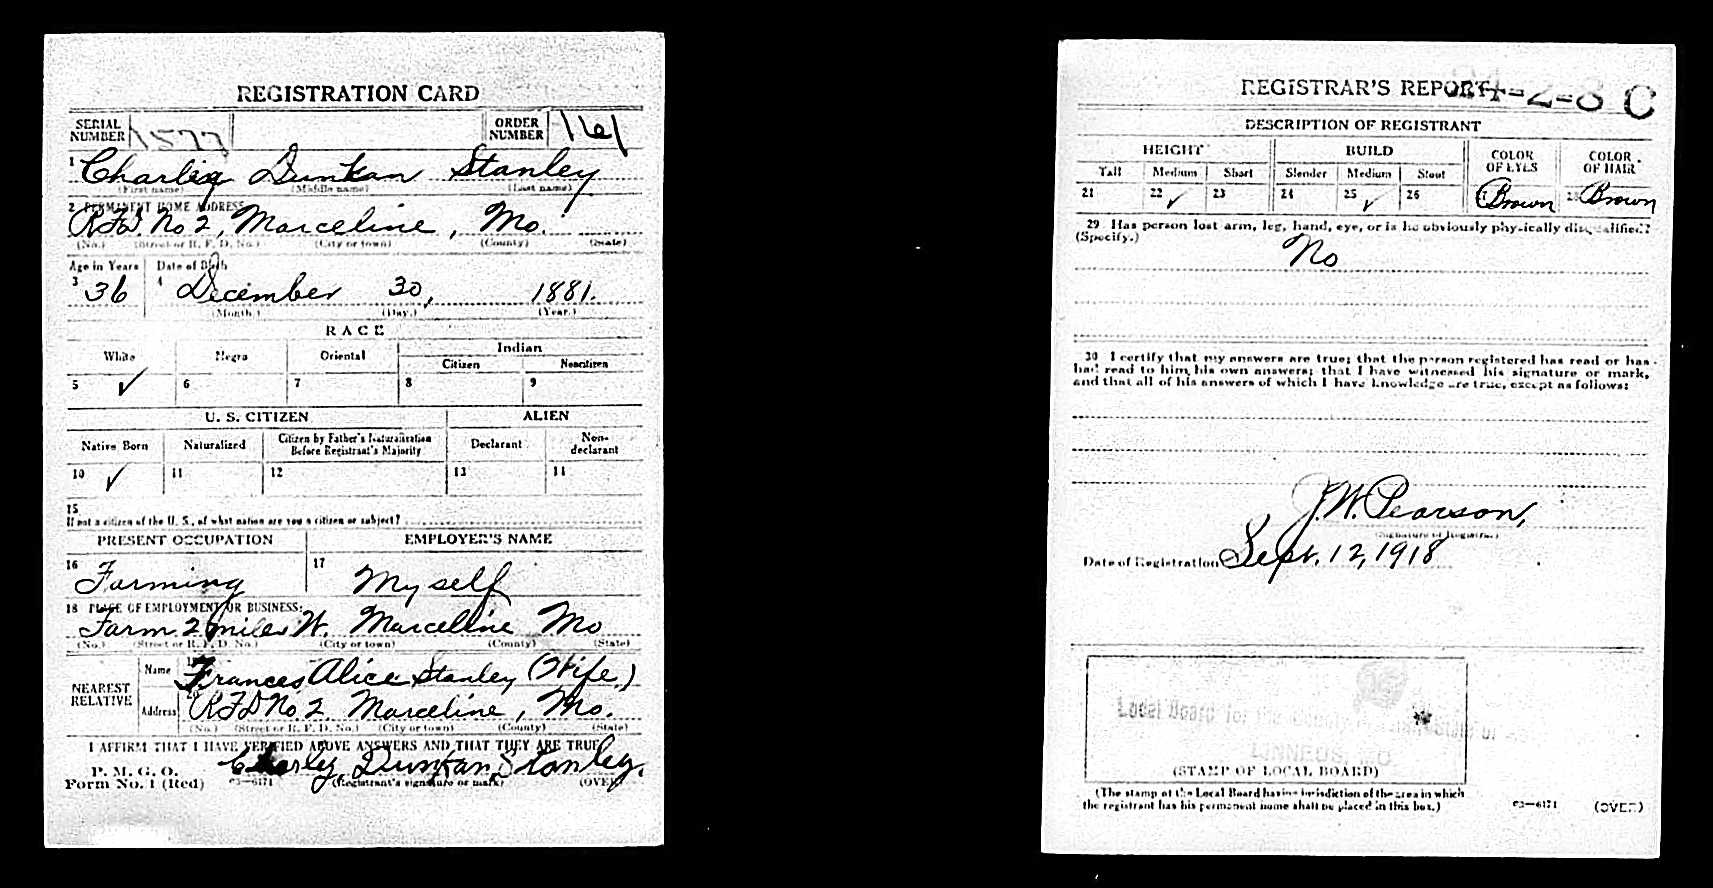 REGISTRATION CARD
SERIAL NUMBER 1577 ORDER NUMBER 161
1 Charley Dunkan Stanley
(First name) (Middle name) (Last name)
2 PERMANENT HOME ADDRESS
RFD. No 2, Marceline, Mo.
(No.) (Street or R. F. D. No.) (City or town) (County) (State)
Age in Years Date of Birth
3 36 4 December 30, 1881.
(Month.) (Day.) (Year.)
RACE
White Negro Oriental Indian
Citizen Noncitizen
5 ✓ 6 7 8 9
U. S. CITIZEN ALIEN
Native Born Naturalized Citizen by Father's Naturalization Before Registrant's Majority Declarant Non-declarant
10 ✓ 11 12 13 14
15
If not a citizen of the U. S., of what nation are you a citizen or subject?
PRESENT OCCUPATION EMPLOYER'S NAME
16 Farming 17 Myself
18 PLACE OF EMPLOYMENT OR BUSINESS:
Farm 2 miles W. Marceline Mo
(No.) (Street or R. F. D. No.) (City or town) (County) (State)
NEAREST RELATIVE
Name 19 Frances Alice Stanley (Wife)
Address 20 RFD No. 2. Marceline, Mo.
(No.) (Street or R. F. D. No.) (City or town) (County) (State)
I AFFIRM THAT I HAVE VERIFIED ABOVE ANSWERS AND THAT THEY ARE TRUE
P. M. G. O.
Form No. 1 (Red) 03—6171 Charley Dunkan Stanley.
(Registrant's signature or mark) (OVER)
REGISTRAR'S REPORT
24-2-8 C
DESCRIPTION OF REGISTRANT
HEIGHT BUILD COLOR OF EYES COLOR OF HAIR
Tall Medium Short Slender Medium Stout
21 22 ✓ 23 24 25 ✓ 26 Brown 28 Brown
29 Has person lost arm, leg, hand, eye, or is he obviously physically disqualified?
(Specify.) No
30 I certify that my answers are true; that the person registered has read or has
had read to him his own answers; that I have witnessed his signature or mark,
and that all of his answers of which I have knowledge are true, except as follows:
J. W. Pearson,
(Signature of Registrar)
Date of Registration Sept. 12, 1918
Local Board for the County
LINNEUS, MO.
(STAMP OF LOCAL BOARD)
(The stamp of the Local Board having jurisdiction of the area in which
the registrant has his permanent home shall be placed in this box.)
03—6171 (OVER)